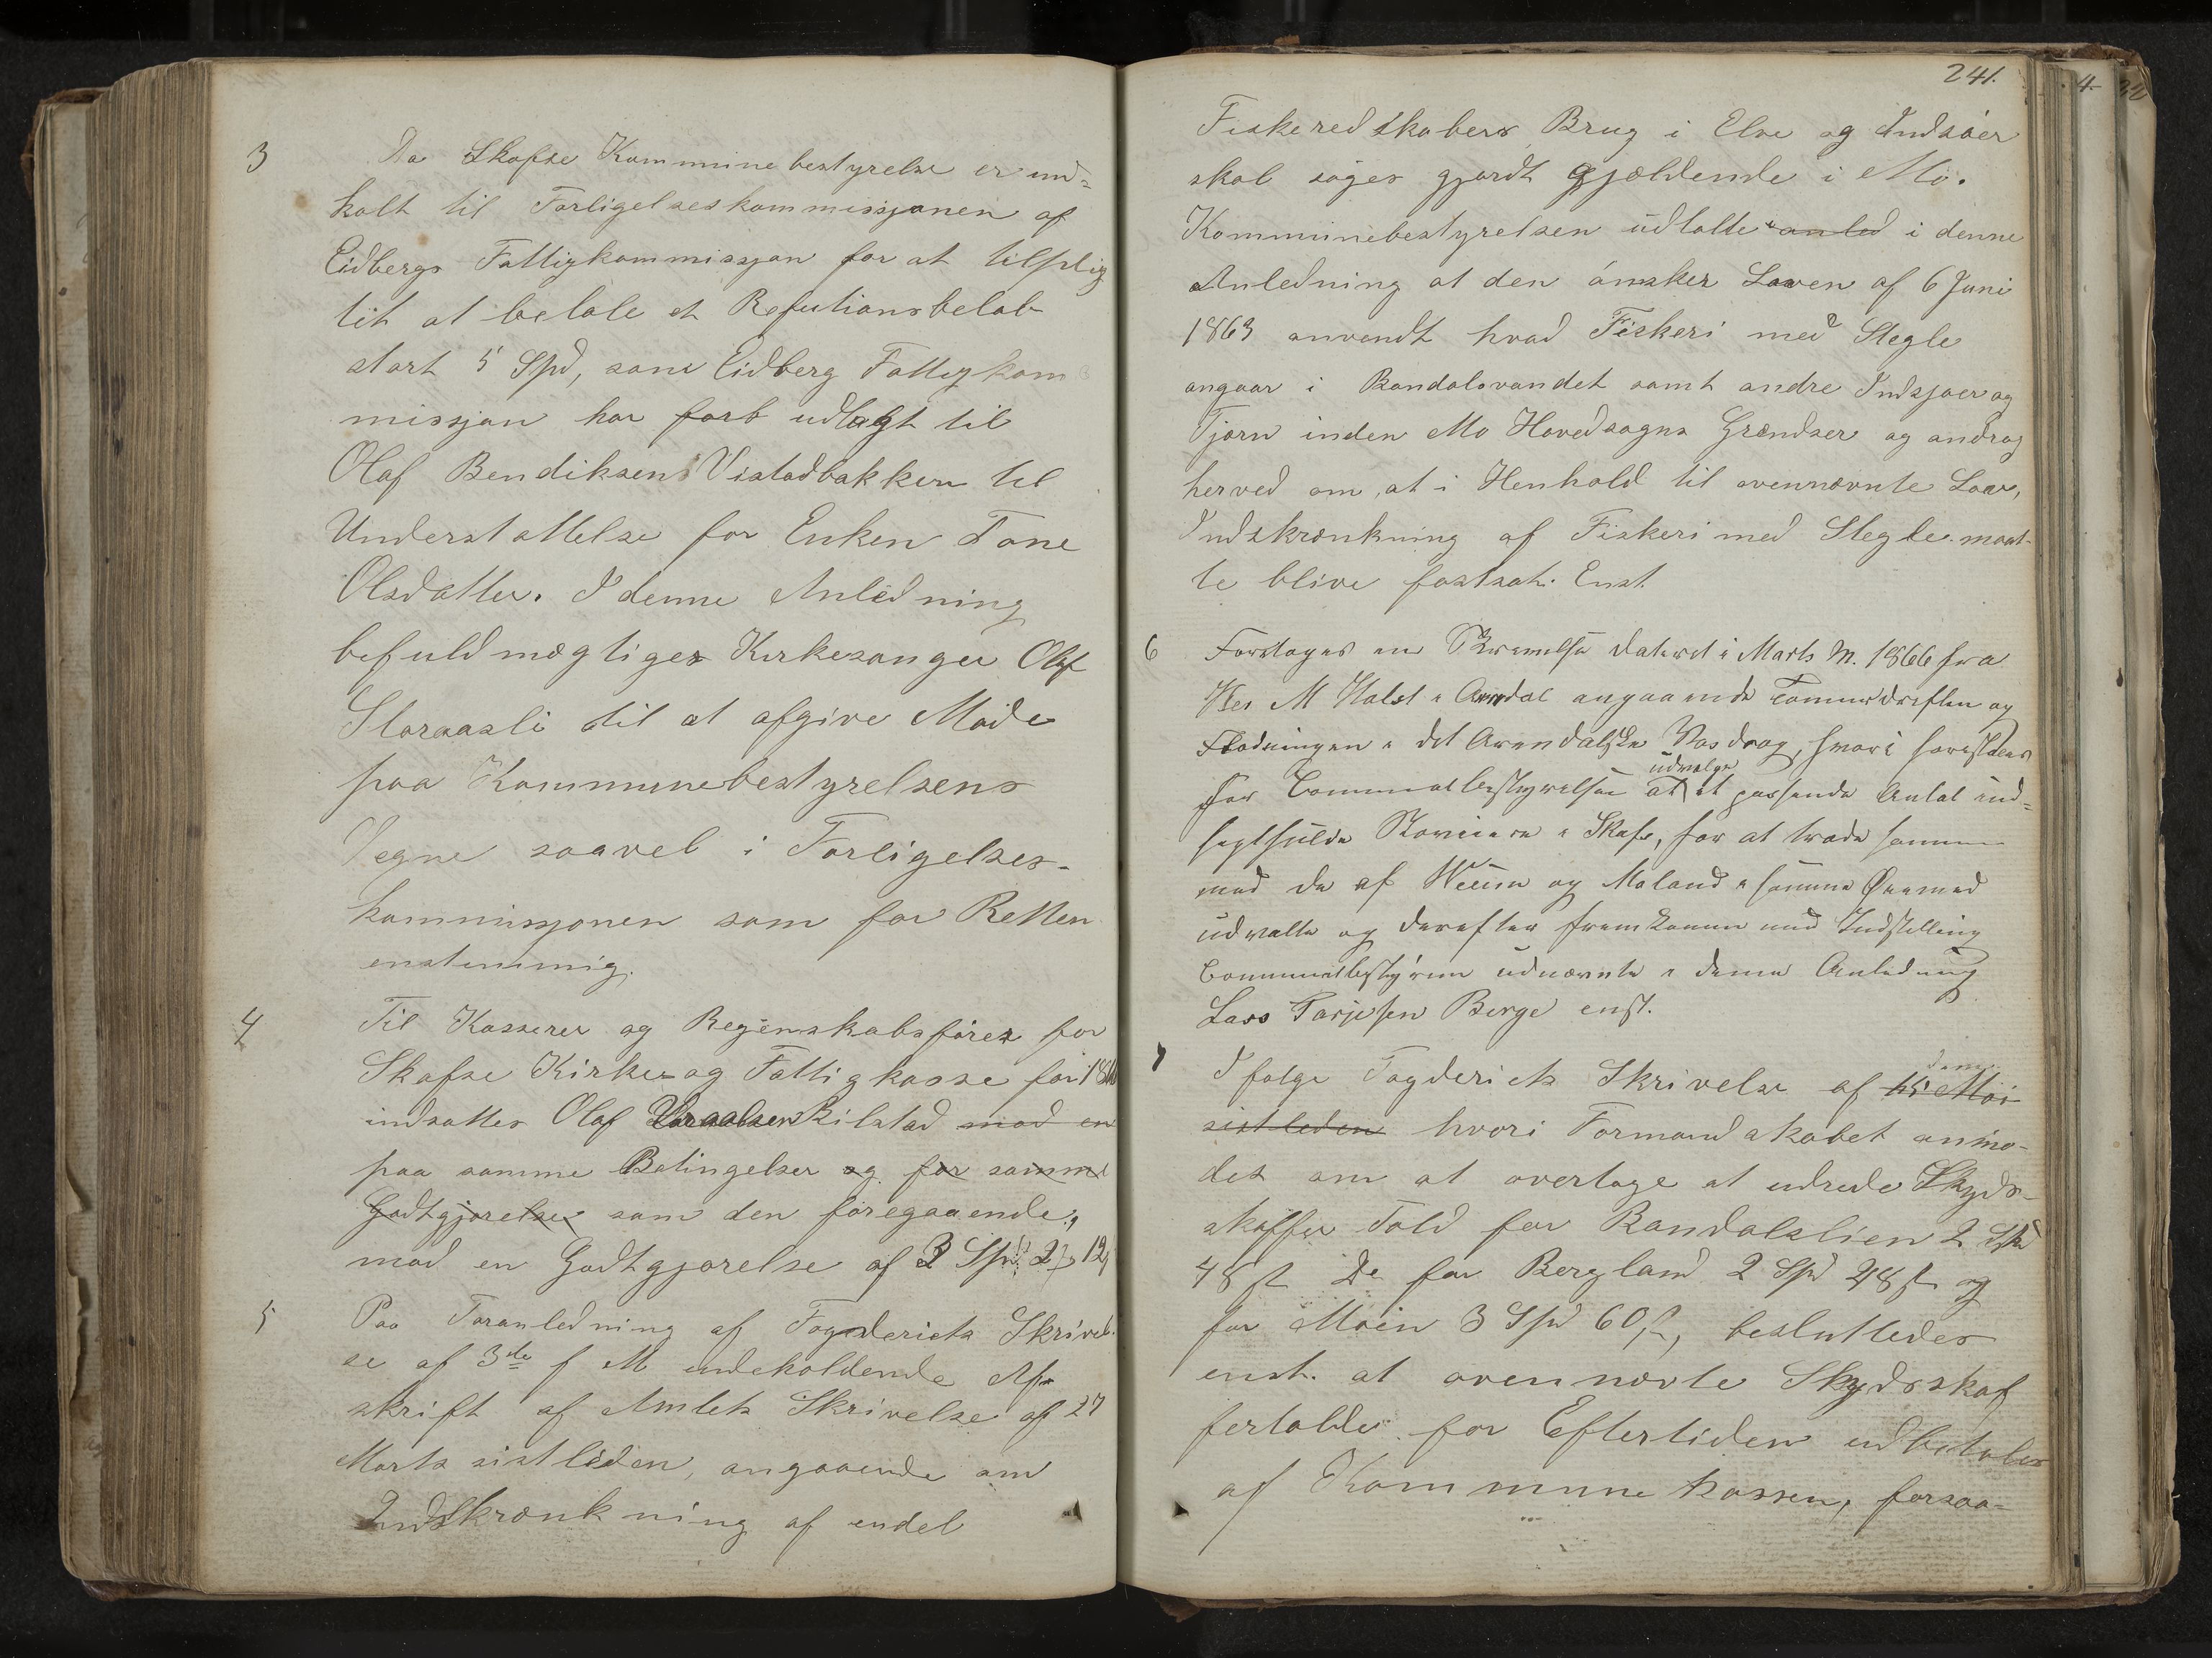 3 Da Skafse Kommunebestyrelse er ind=
kalt til Forligelseskommissjonen af
Eidbergs Fattigkommissjon for at tilplig
tit at betale et Refutionsbeløb
stort 5 Spd, som Eidberg Fattigkom
missjon har forb udlagt til
Olaf Bendiksen Vistadbakken til
Understøttelse for Enken Tone
Olsdatter. I denne Anledning
befuldmægtiges Kirkesanger Olaf
Storaasli til at afgive Møde
paa Kommunebestyrelsens
Vegne saavel i Forligelses-
kommissjonen som for Retten
enstemmig.
4 Til Kasserer og Regenskabsfører for
Skafse Kirke og Fattigkasse for 186
indsattes Olaf Rilstad mod en
paa samme Betingelser og for samme
Godtgjørelse som den foregaaende,
mod en Godtgjørelse af 3 Spd 2 12
5 Paa Foranledning af Fogderiets Skrivel-
se af 3de f M indeholdende Af-
skrift af Amtets Skrivelse af 27
Marts sistleden, angaaende om
Indskrænkning af endel
241.
Fiskeredskabers Brug i Elve og Indsøer
skal søges gjordt gjældende i Mo.
Kommunebestyrelsen udtalte anled i denne
Anledning at den ønsker Loven af 6 Juni
1863 anvendt hvad Fiskeri med Stegle
angaar i Bandalsvandet samt andre Indsjøer og
Tjørn inden Mo Hovedsogns Grændser og androg
herved om, at i Henhold til ovennævnte Lov,
Indskrænkning af Fiskeri med Stegle maat-
te blive fastsat. Enst
6 Foretages en Skrivelse dateret i Marts M. 1866 fra
Her M Halst i Arendal angaaende Tømmerdriften og
Flødningen i det Arendalske Vasdrag, hvori forestilles
udvælge
for Communalbestyrelsen at et passende Antal ind=
sigtsfulde i Skafse, for at træde sammen
med de af og Moland i samme Øiemed
udvalte og derefter fremkomme med Indstilling
Communalbestyrern udnævnte i denne Anledning
Lars Tarjesen Berge enst.
7 Ifølge Fogderiets Skrivelse af 15 Mai
sistleden hvori Formandskabet anmo-
des om at overtage at udrede Skyds-
skaffer Told for Bandalslien 2 Spd
48 s Do for Bergland 2 Spd 48 s og
for Moien 3 Spd 60 s, besluttedes
enst. at ovennævte Skydsskaf
fertolde for Eftertiden udbetales
af Kommunekassen, forsaa-